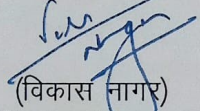 (विकास नागर)